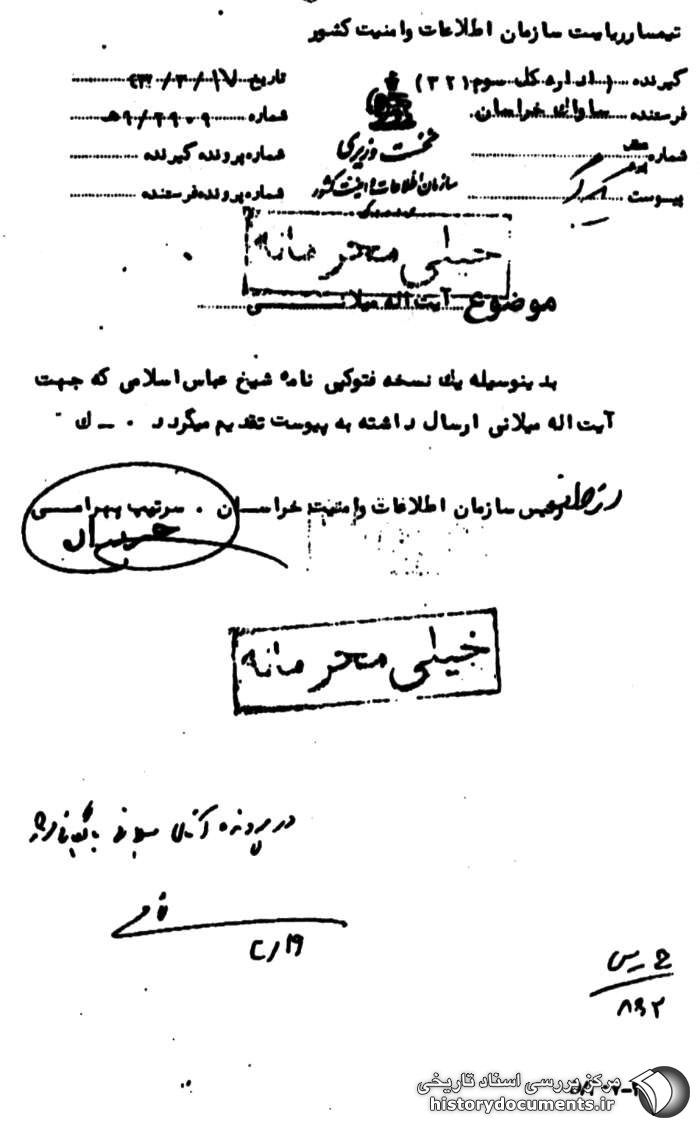 تیمسار ریاست سازمان اطلاعات و امنیت کشور
گیرنده (اداره کل سوم ۳۲۱)
فرستنده ساواک خراسان
شماره
پیوست
نخست وزیری
سازمان اطلاعات و امنیت کشور
س.ا.و.ا.ک
تاریخ ۴۳/۳/۱۷
شماره ۹/۲۹۰۹هـ
شماره پرونده گیرنده
شماره پرونده فرستنده
خیلی محرمانه
موضوع آیت اله میلانی
بدینوسیله یک نسخه فتوکپی نامه شیخ عباس اسلامی که جهت
آیت اله میلانی ارسال داشته به پیوست تقدیم میگردد . ـ ک
رئیس سازمان اطلاعات و امنیت خراسان . سرتیپ بهرامی
خیلی محرمانه
در پرونده آیت اله میلانی بایگانی شود
۳/۱۹
۸۵۲
مرکز بررسی اسناد تاریخی
historydocuments.ir